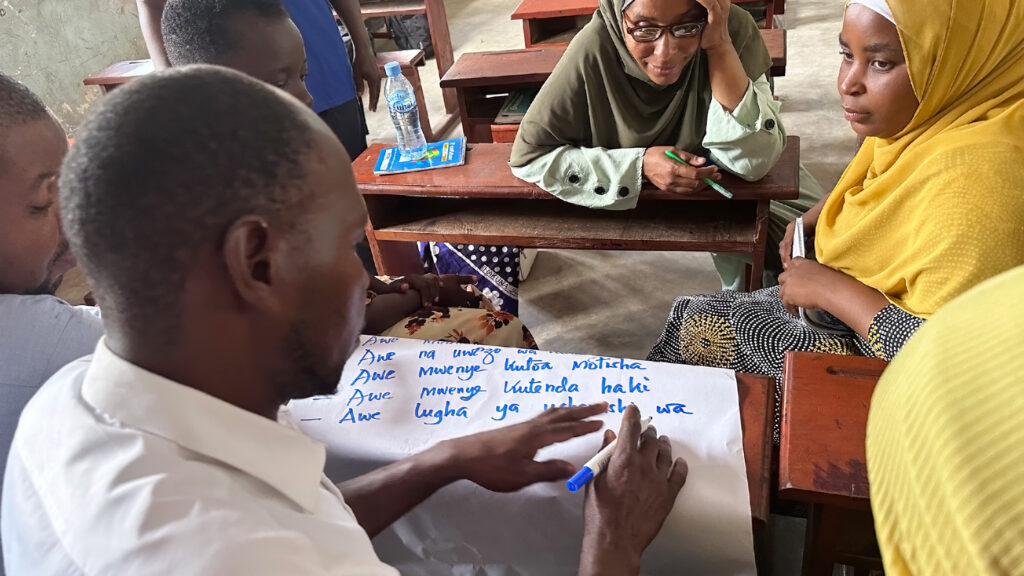 Awe
Awe na uwezo wa
Awe mwenye kutoa motisha
Awe mwenye kutenda haki
– Awe lugha ya wa